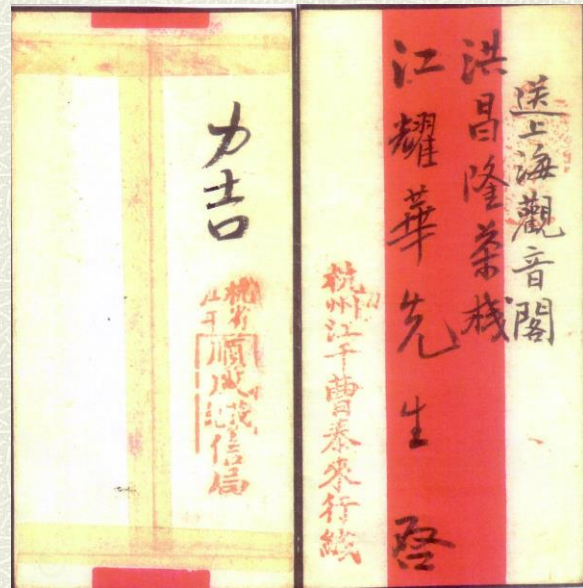 送上海觀音閣
洪昌隆茶棧
江耀華先生啓
杭州江干曹泰來行緘
力吉
杭省
江干
順成信局